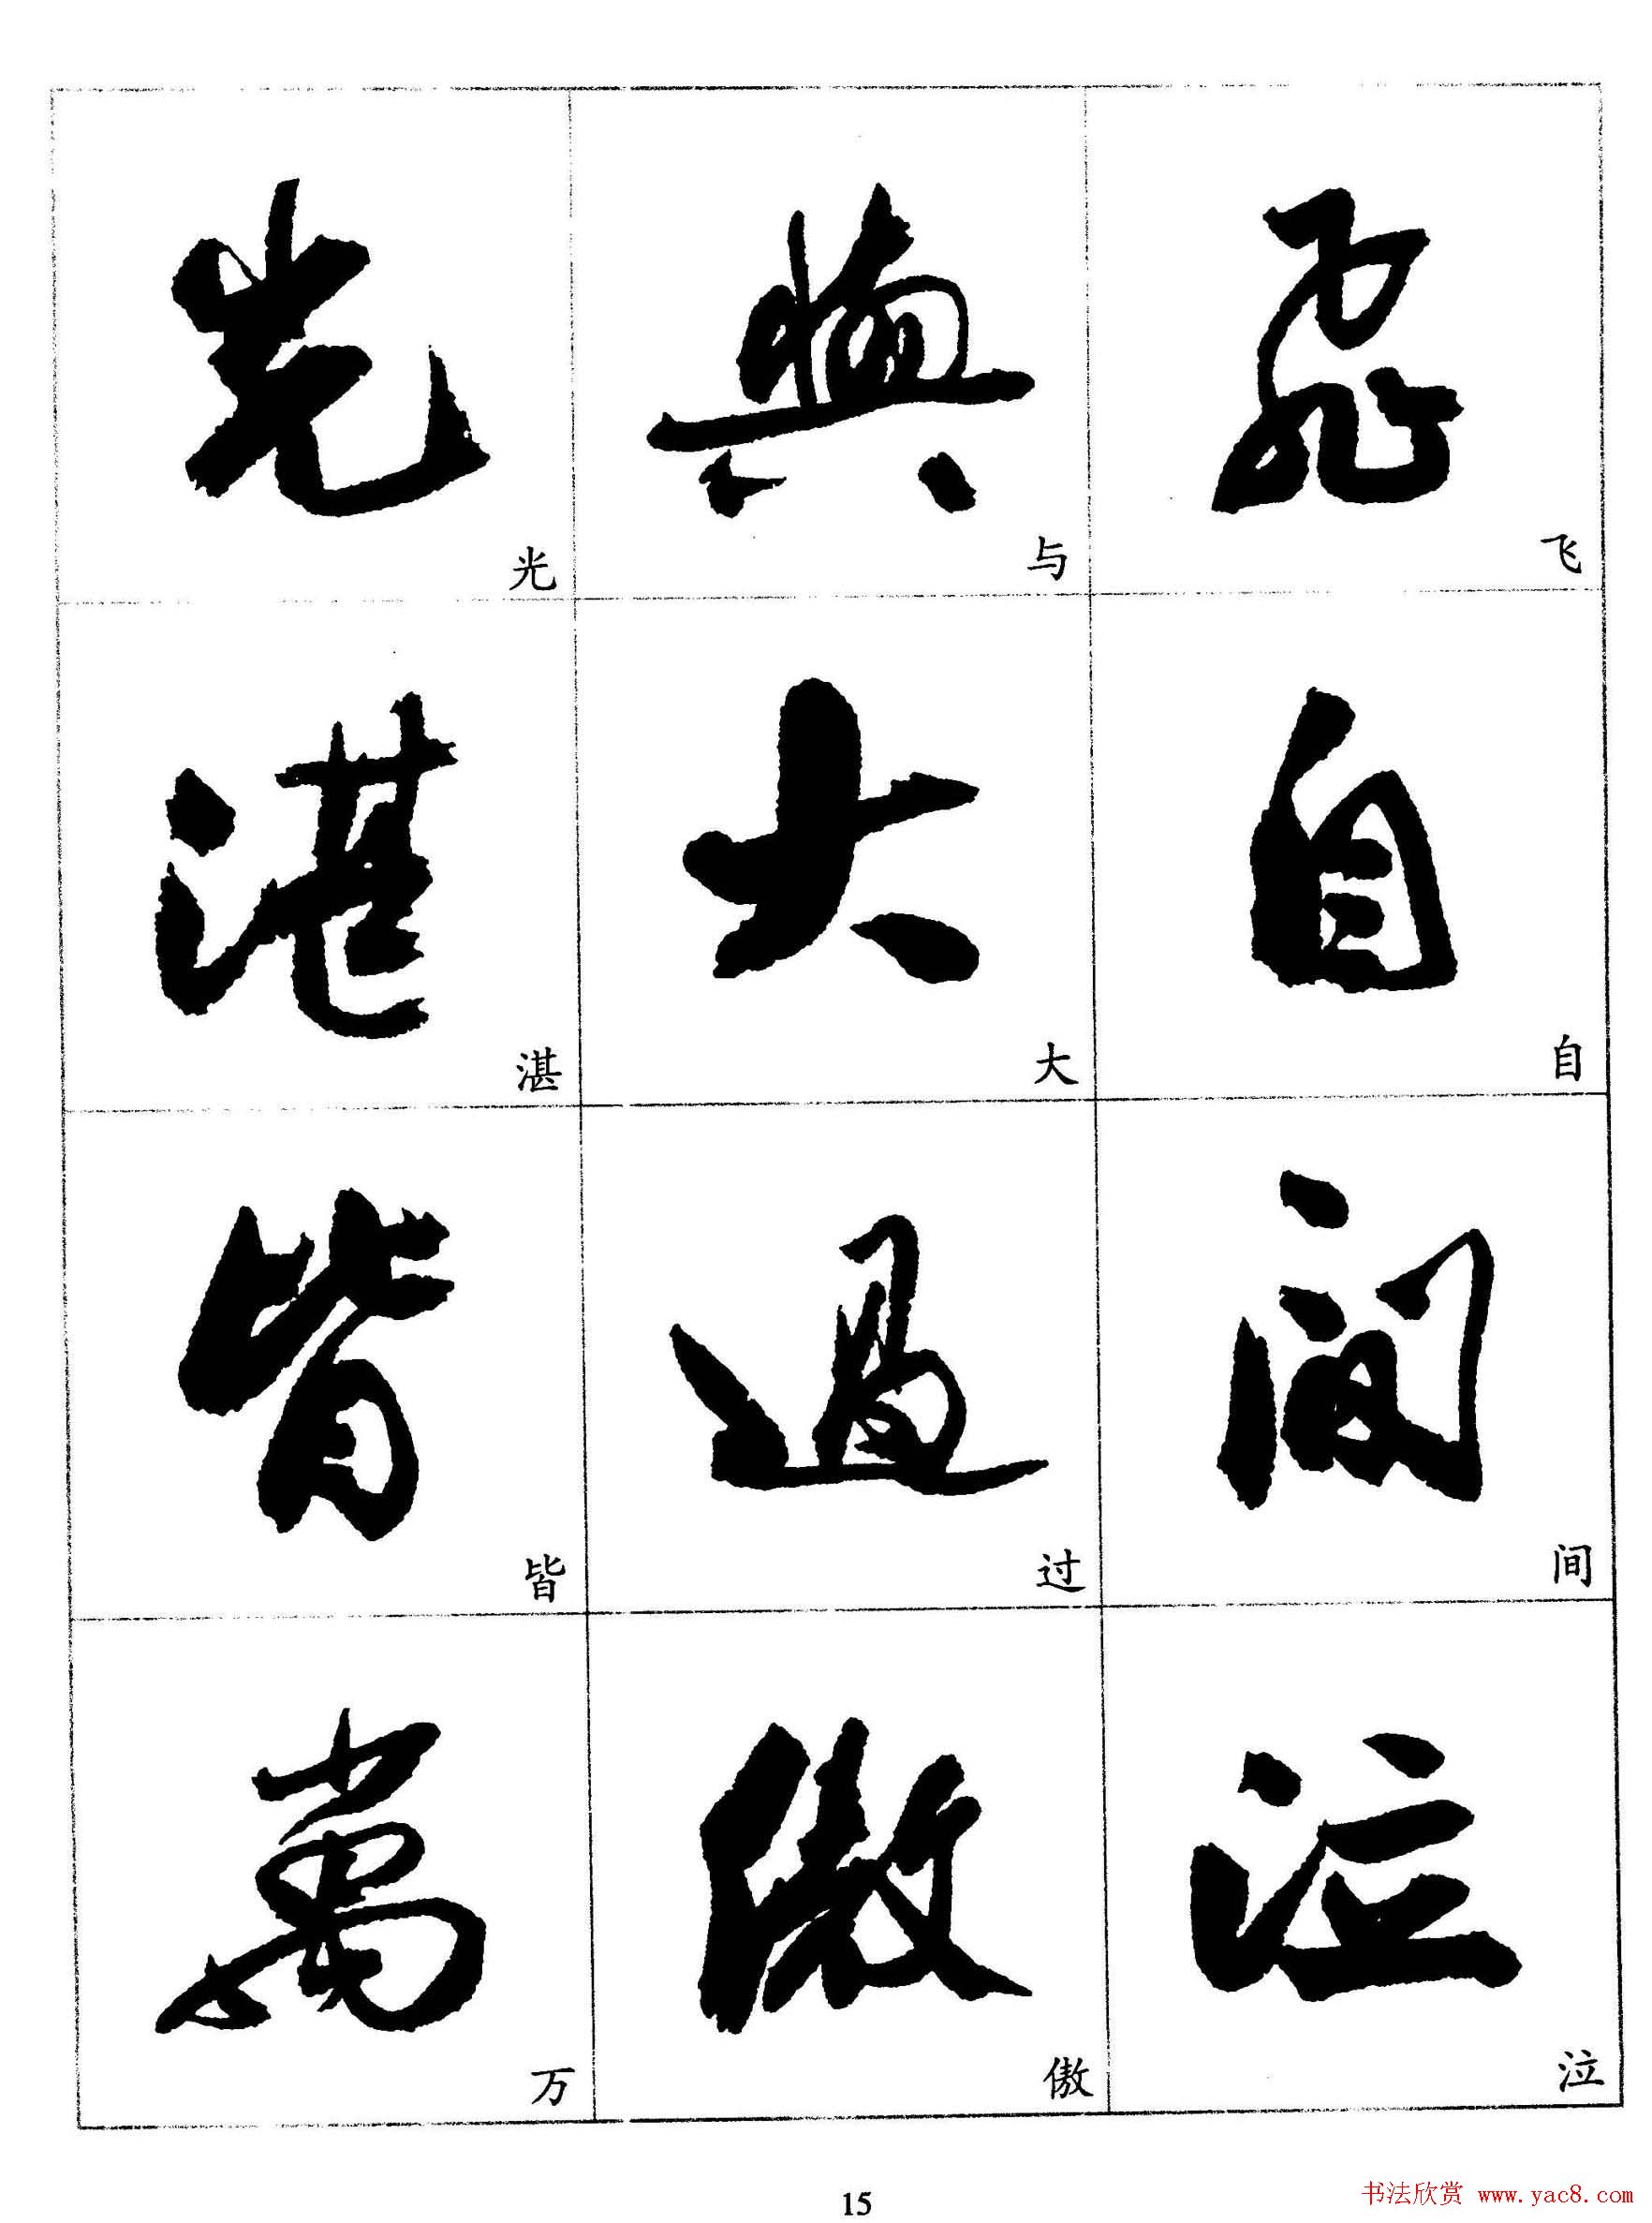 光 與 飛
光 与 飞
湛 大 自
湛 大 自
皆 過 间
皆 过 间
萬 傲 泣
万 傲 泣
15
书法欣赏 www.yac8.com